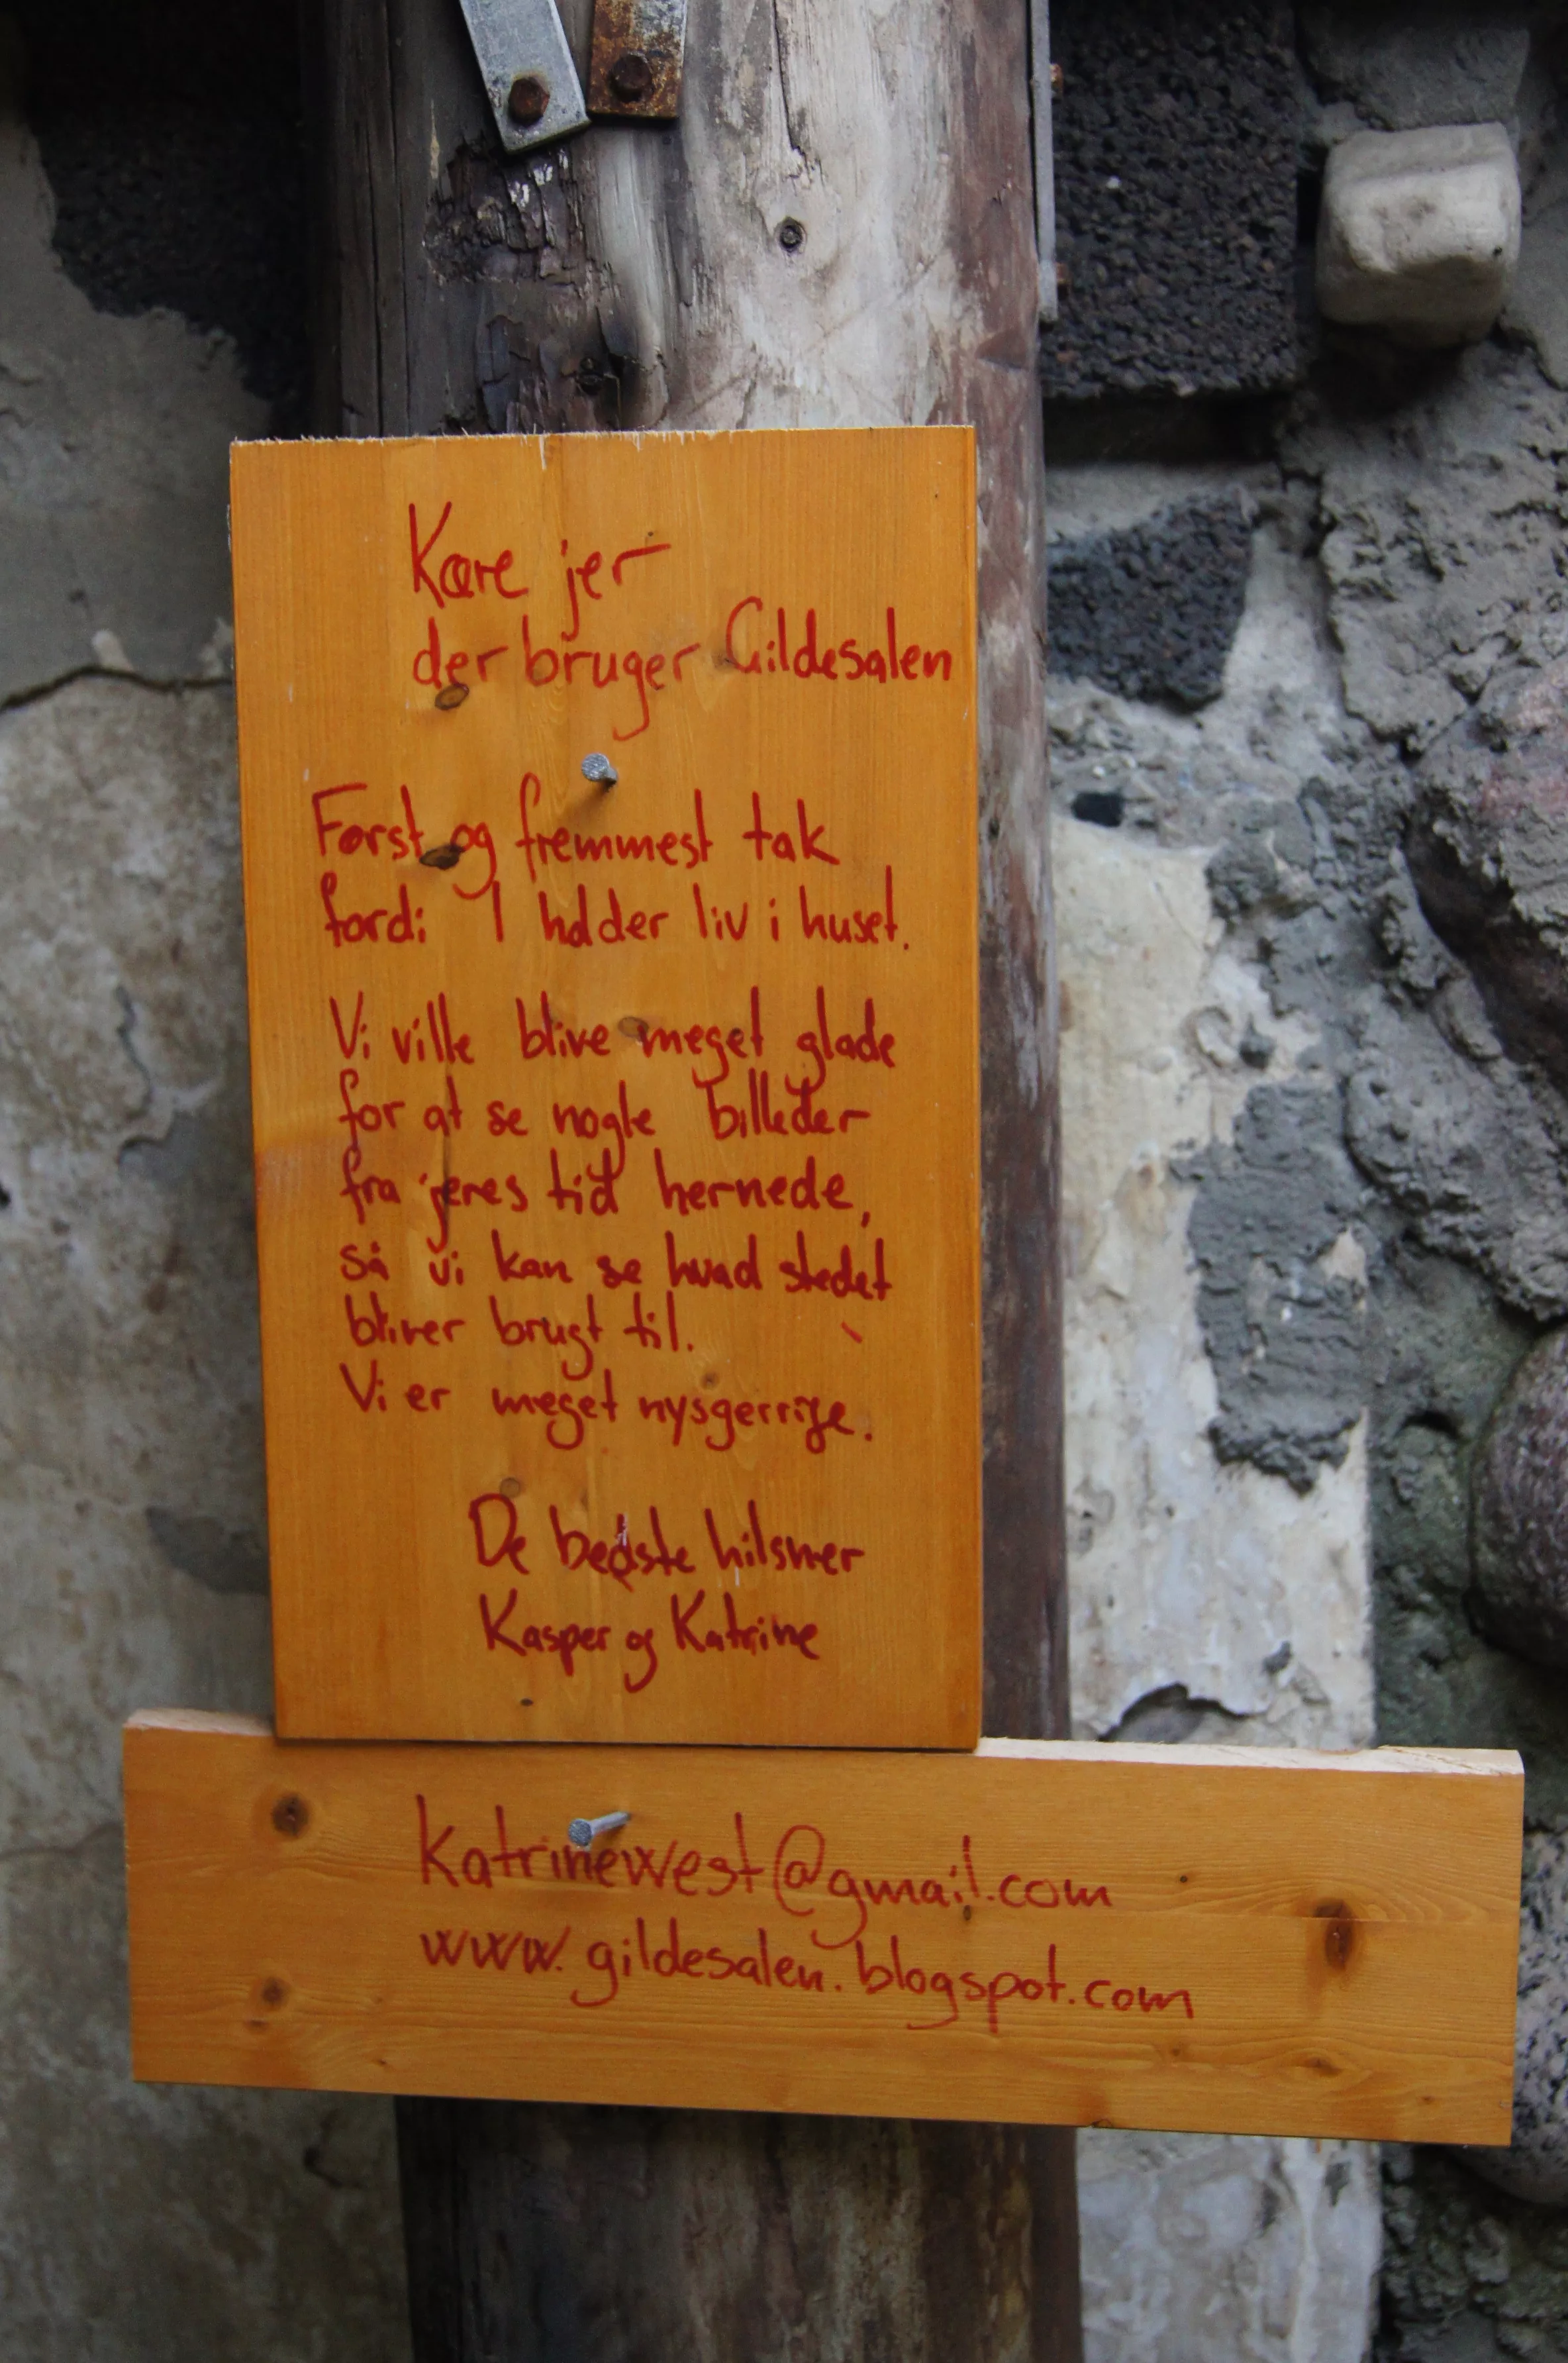 Kære jer
der bruger Gildesalen
Først og fremmest tak
fordi I holder liv i huset.
Vi ville blive meget glade
for at se nogle billeder
fra jeres tid hernede,
så vi kan se hvad stedet
bliver brugt til.
Vi er meget nysgerrige.
De bedste hilsner
Kasper og Katrine
katrinewest@gmail.com
www.gildesalen.blogspot.com